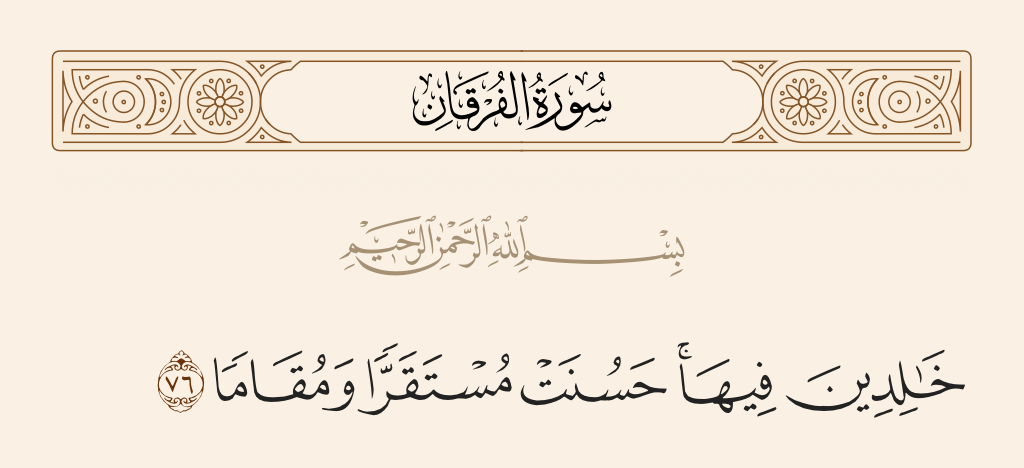 سُورَةُ الفُرْقَانِ
بِسْمِ ٱللَّهِ ٱلرَّحْمَٰنِ ٱلرَّحِيمِ
خَٰلِدِينَ فِيهَاۚ حَسُنَتْ مُسْتَقَرًّا وَمُقَامًا ٧٦